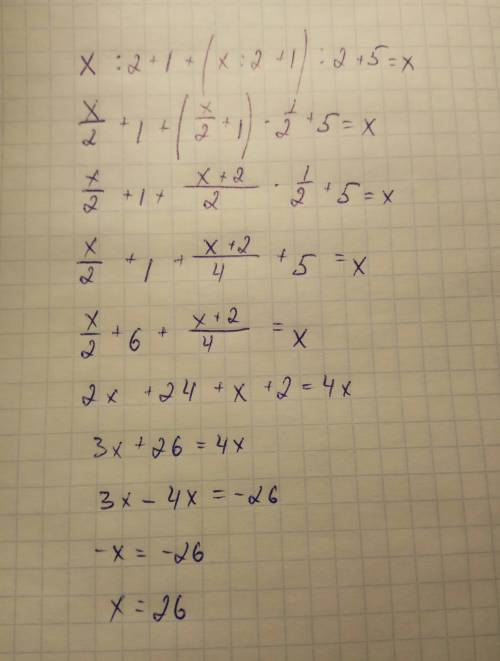 x : 2 + 1 + (x : 2 + 1) : 2 + 5 = x
x/2 + 1 + (x/2 + 1) · 1/2 + 5 = x
x/2 + 1 + (x + 2)/2 · 1/2 + 5 = x
x/2 + 1 + (x + 2)/4 + 5 = x
x/2 + 6 + (x + 2)/4 = x
2x + 24 + x + 2 = 4x
3x + 26 = 4x
3x - 4x = -26
-x = -26
x = 26